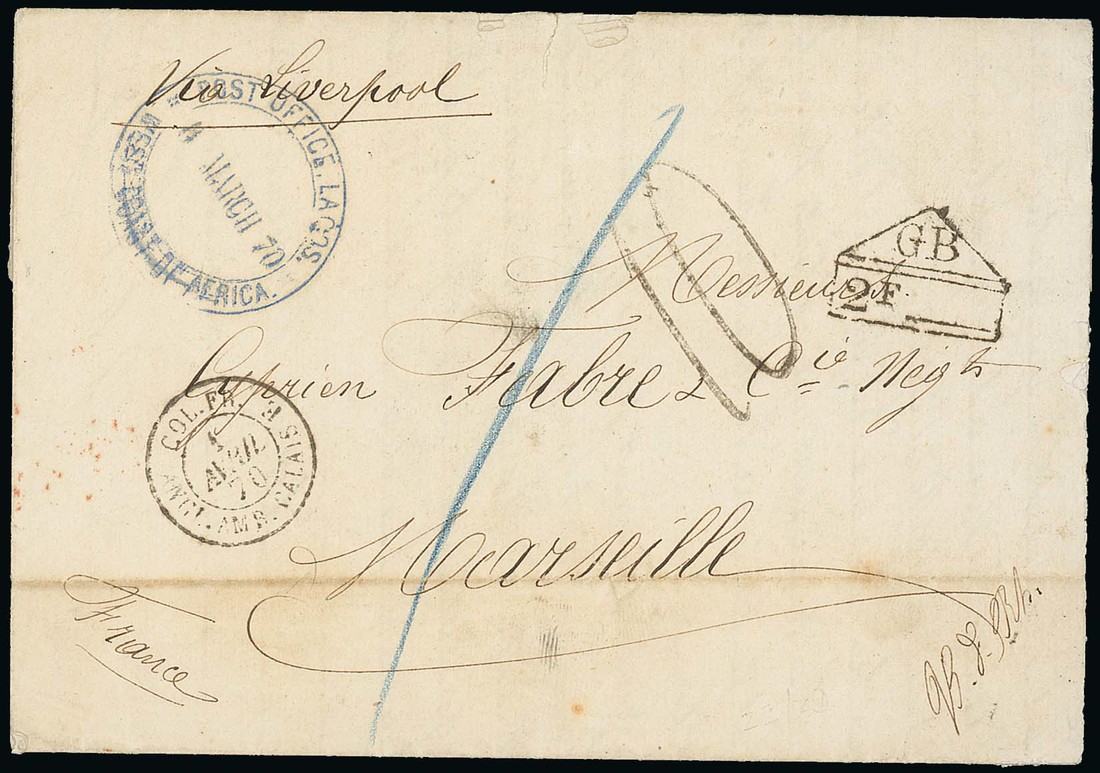 Via Liverpool
POST OFFICE, LAGOS.
WEST COAST OF AFRICA.
4 MARCH 70
GB
2F
10
Messieurs
Cyprien Fabre & Cie Negts
COL. FR.
ANGL. AMB. CALAIS
1
AVRIL
70
Marseille
France